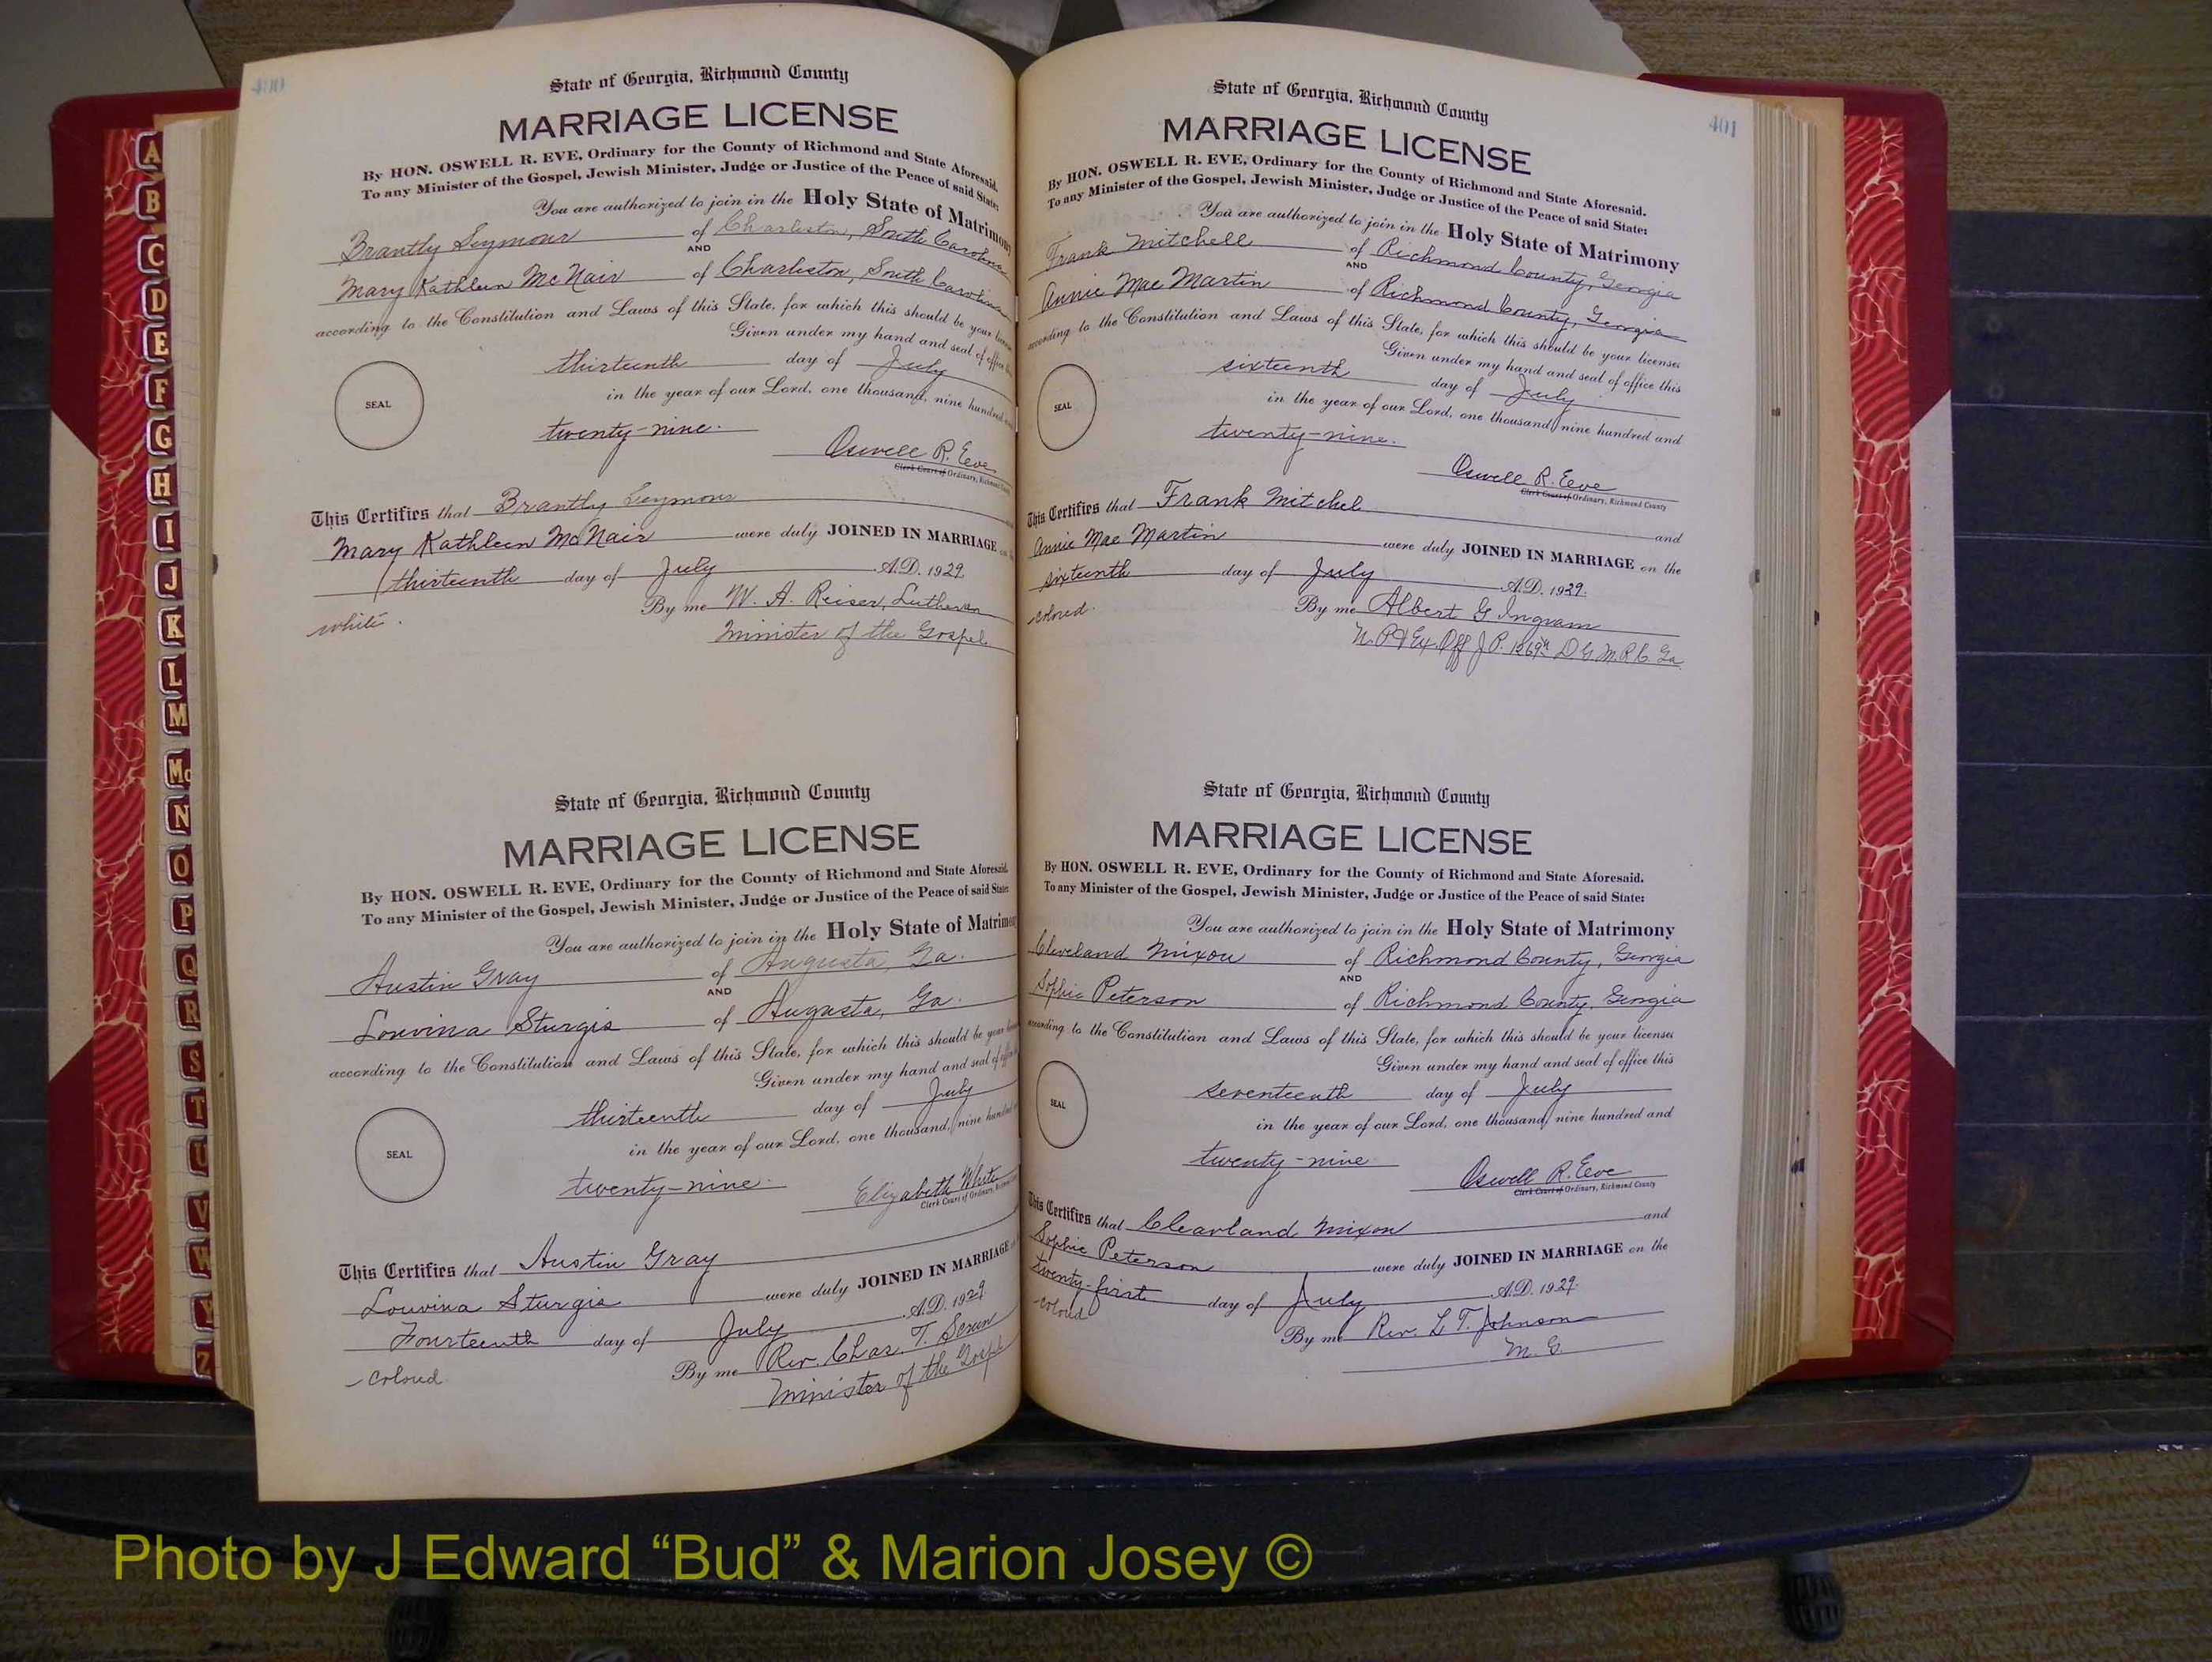 400
State of Georgia, Richmond County
MARRIAGE LICENSE
By HON. OSWELL R. EVE, Ordinary for the County of Richmond and State Aforesaid.
To any Minister of the Gospel, Jewish Minister, Judge or Justice of the Peace of said State:
You are authorized to join in the Holy State of Matrimony
Brantly Seymour of Charleston, South Carolina
AND
Mary Kathleen McNair of Charleston, South Carolina
according to the Constitution and Laws of this State, for which this should be your license
Given under my hand and seal of office
thirteenth day of July
SEAL
in the year of our Lord, one thousand, nine hundred
twenty-nine.
Oswell R. Eve
Clerk Court of Ordinary, Richmond
This Certifies that Brantly Seymour
Mary Kathleen McNair were duly JOINED IN MARRIAGE on
thirteenth day of July A.D. 1929.
By me W. A. Reiser, Lutheran
white.
Minister of the Gospel.
State of Georgia, Richmond County
MARRIAGE LICENSE
By HON. OSWELL R. EVE, Ordinary for the County of Richmond and State Aforesaid.
To any Minister of the Gospel, Jewish Minister, Judge or Justice of the Peace of said State:
You are authorized to join in the Holy State of Matrimo
Austin Gray of Augusta, Ga.
AND
Louvina Sturgis of Augusta, Ga.
according to the Constitution and Laws of this State, for which this should be your
Given under my hand and seal of
thirteenth day of July
SEAL
in the year of our Lord, one thousand, nine hundred
twenty-nine.
Elizabeth White
Clerk Court of Ordinary,
This Certifies that Austin Gray
Louvina Sturgis were duly JOINED IN MARRIAGE
Fourteenth day of July A.D. 1929.
By me Rev. Chas. T.
colored
Minister of the Gospel
401
State of Georgia, Richmond County
MARRIAGE LICENSE
By HON. OSWELL R. EVE, Ordinary for the County of Richmond and State Aforesaid.
To any Minister of the Gospel, Jewish Minister, Judge or Justice of the Peace of said State:
You are authorized to join in the Holy State of Matrimony
Frank Mitchell of Richmond County, Georgia
AND
Annie Mae Martin of Richmond County, Georgia
according to the Constitution and Laws of this State, for which this should be your license
Given under my hand and seal of office this
sixteenth day of July
SEAL
in the year of our Lord, one thousand, nine hundred and
twenty-nine.
Oswell R. Eve
Clerk Court of Ordinary, Richmond County
This Certifies that Frank Mitchel
and
Annie Mae Martin were duly JOINED IN MARRIAGE on the
sixteenth day of July A.D. 1929.
By me Albert G Ingram
colored.
N. P. & Ex. Off J. P. 1269th D G. M. R. C. Ga
State of Georgia, Richmond County
MARRIAGE LICENSE
By HON. OSWELL R. EVE, Ordinary for the County of Richmond and State Aforesaid.
To any Minister of the Gospel, Jewish Minister, Judge or Justice of the Peace of said State:
You are authorized to join in the Holy State of Matrimony
Cleveland Mixon of Richmond County, Georgia
AND
Sophie Peterson of Richmond County, Georgia
according to the Constitution and Laws of this State, for which this should be your license
Given under my hand and seal of office this
seventeenth day of July
SEAL
in the year of our Lord, one thousand, nine hundred and
twenty-nine
Oswell R. Eve
Clerk Court of Ordinary, Richmond County
This Certifies that Cleavland Mixon and
Sophie Peterson were duly JOINED IN MARRIAGE on the
twenty-first day of July A.D. 1929.
colored
By me Rev. L. T. Johnson
M. G.
A
B
C
D
E
F
G
H
I
J
K
L
M
Mc
N
O
P
Q
R
S
T
U
V
W
Y
Z
Photo by J Edward “Bud” & Marion Josey ©